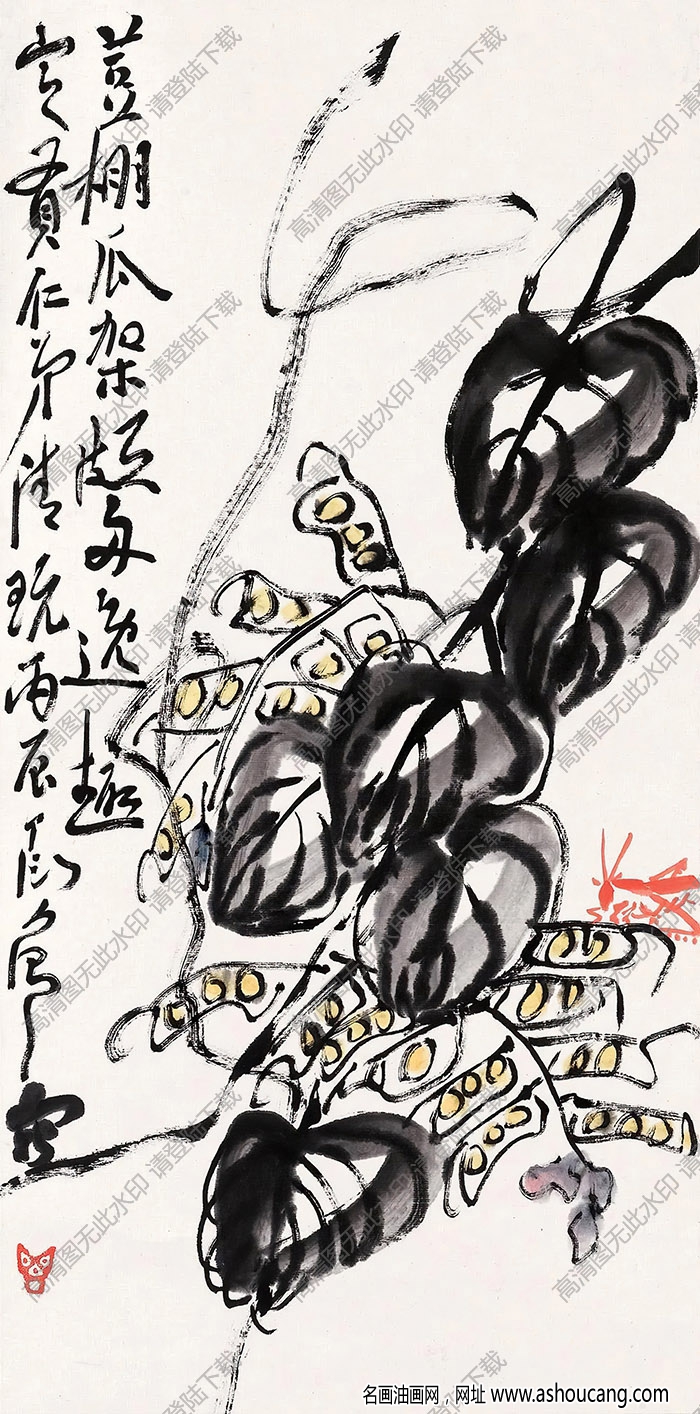 荳棚瓜架頗多逸趣
宝贵仁弟清玩丙辰
高清图无此水印 请登陆下载
名画油画网,网址 www.ashoucang.com